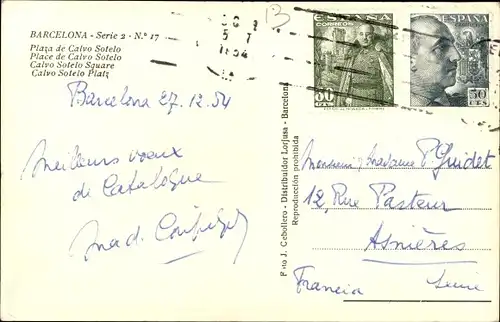 BARCELONA - Serie 2 - N.º 17
Plaza de Calvo Sotelo
Place de Calvo Sotelo
Calvo Sotelo Square
Calvo Sotelo Platz
Barcelona 27.12.54
Meilleurs voeux
de Catalogne
ESPAÑA
CORREOS
80
CTS
ESPAÑA
50
CTS
Foto J. Cebollero - Distribuidor Lorjusa - Barcelona
Reproducción prohibida
Monsieur, Madame P. Guidet
12, Rue Pasteur
Asnières
Seine
Francia